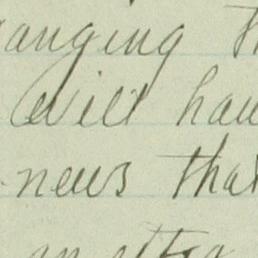 anging th
will hav
news that
an